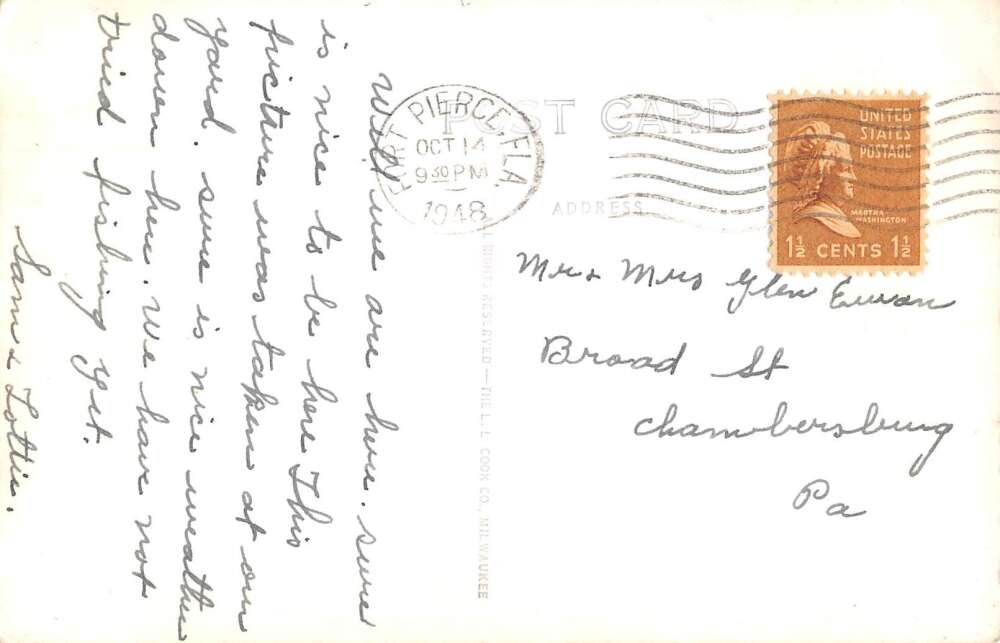 Well we are here. sure
is nice to be here This
picture was taken at our
yard. sure is nice weather
down here. We have not
tried fishing yet.
Sam & Lottie.
POST CARD
FORT PIERCE, FLA.
OCT 14
9 30 PM
1948
ADDRESS
UNITED
STATES
POSTAGE
MARTHA
WASHINGTON
1½ CENTS 1½
Mr & Mrs Glen Ewan
Broad St
Chambersburg
Pa
RIGHTS RESERVED — THE L. L. COOK CO., MILWAUKEE